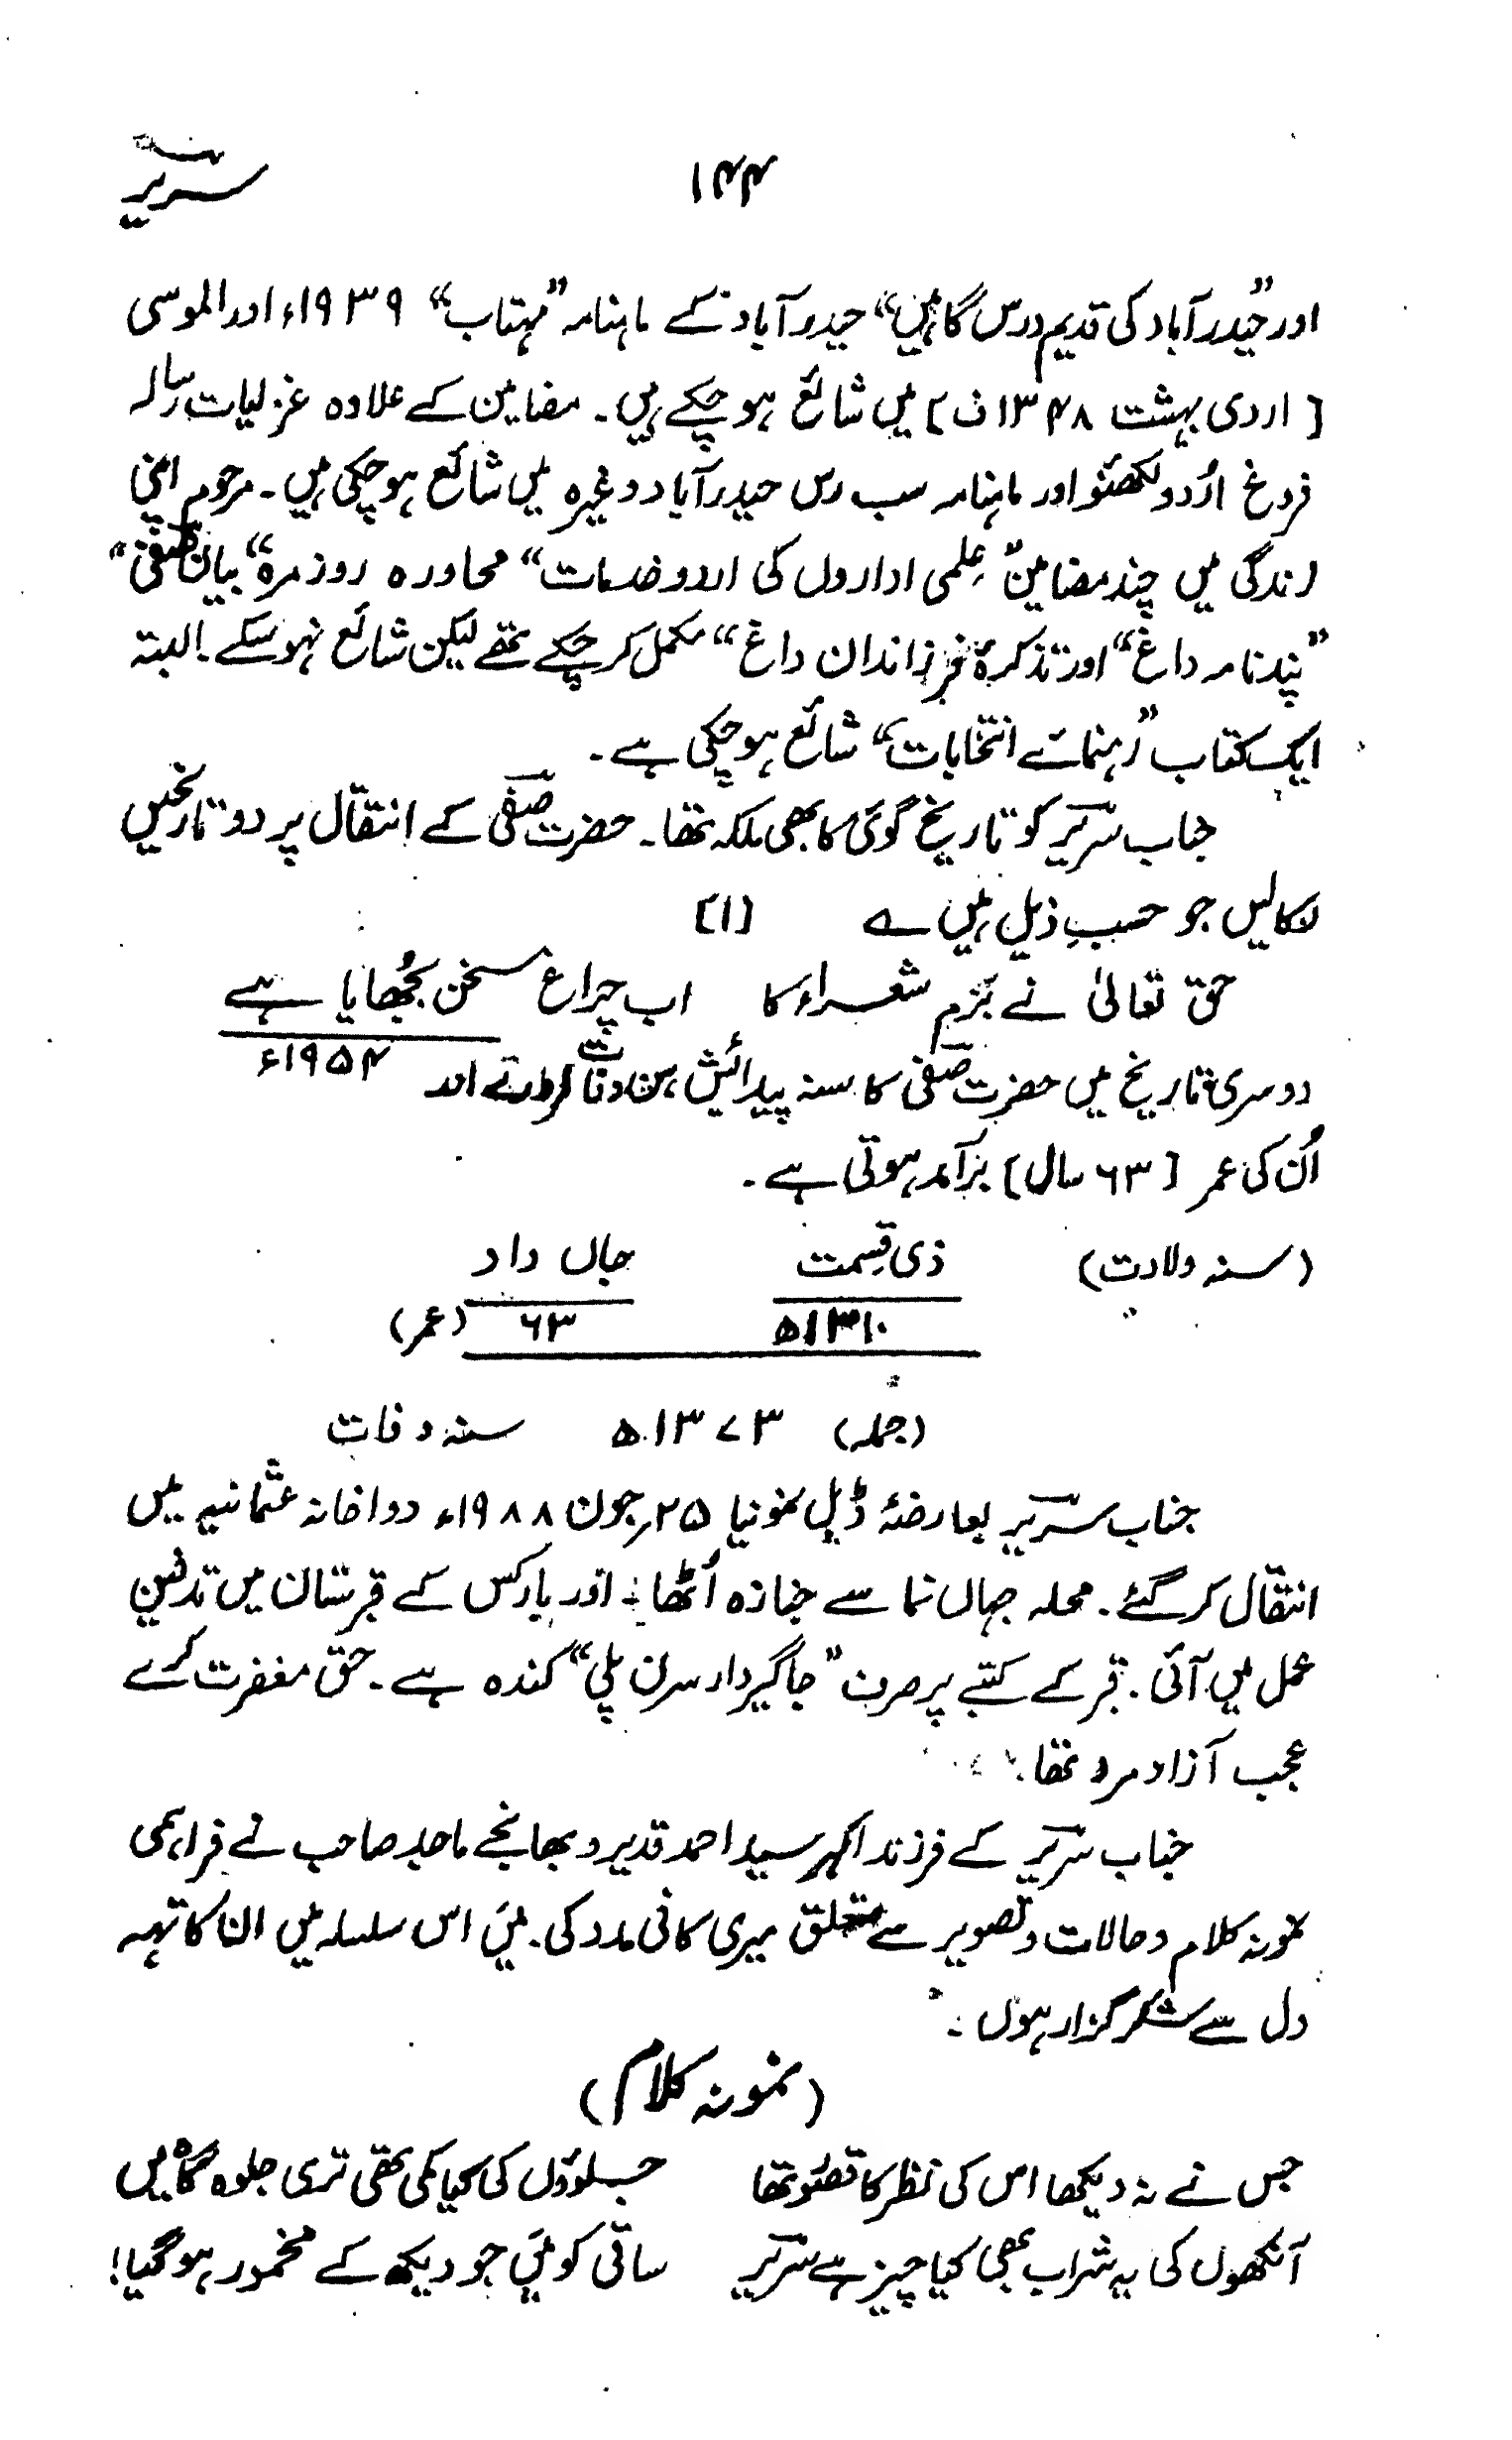 ۱۴۴
سریر
اور ”حیدرآباد کی قدیم درس گاہیں“ حیدرآباد کے ماہنامہ ”مہتاب“ ۱۹۳۹ء اور الموسی
[اردی بہشت ۱۳۴۸ف] میں شائع ہوچکے ہیں۔ مضامین کے علاوہ غزلیات رسالہ
فروغ اُردو لکھنؤ اور ماہنامہ سب رس حیدرآباد وغیرہ میں شائع ہوچکی ہیں۔ مرحوم اپنی
زندگی میں چند مضامین ”عِلمی اداروں کی اردو خدمات“ محاورہ روزمرہ“ بیان صفیؔ“
”پندنامہ داغ“ اور تذکرۂ فرزاندان داغ“ مکمل کرچکے تھے لیکن شائع نہوسکے۔ البتہ
ایک کتاب ”رہنمائے انتخابات“ شائع ہوچکی ہے۔
جناب سریرؔ کو تاریخ گوئی کا بھی ملکہ تھا۔ حضرت صفیؔ کے انتقال پر دو تاریخیں
نکالیں جو حسبِ ذیل ہیں ؎ [۱]
حق تعالیٰ نے بزم شعراء کا اب چراغ سخن بُجھایا ہے
۱۹۵۴ء
دوسری تاریخ میں حضرت صفیؔ کا سنہ پیدائش، سنہ وفات اور
اُن کی عمر [۶۳ سال] برآمد ہوتی ہے۔
(سنہ ولادت) ذی قِسمت جاں داد
۱۳۱۰ھ ۶۳ (عمر)
(جملہ) ۱۳۷۳ھ سنہ وفات
جناب سریرؔ بعارضۂ ڈبل نمونیا ۲۵؍جون ۱۹۸۸ء دواخانہ عثمانیہ میں
انتقال کرگئے۔ محلہ جہاں نما سے جنازہ اُٹھا اور بارکس کے قبرستان میں تدفین
عمل میں آئی۔ قبر کے کتبے پر صرف ”جاگیردار سرن پلی“ کندہ ہے۔ حق مغفرت کرے
عجب آزاد مرد تھا۔
جناب سریرؔ کے فرزند اکبر سید احمد قدیر و بھانجے ماجد صاحب نے فراہمی
نمونہ کلام و حالات و تصویر سے متعلق میری کافی مدد کی۔ میں اس سلسلہ میں ان کا تہہ
دل سے شکر گزار ہوں۔
(نمونہ کلام)
جس نے نہ دیکھا اس کی نظر کا قصور تھا جلوؤں کی کیا کمی تھی تری جلوہ گاہ میں
آنکھوں کی یہ شراب بھی کیا چیز ہے سریرؔ ساقی کو میں جو دیکھ کے مخمور ہوگیا!